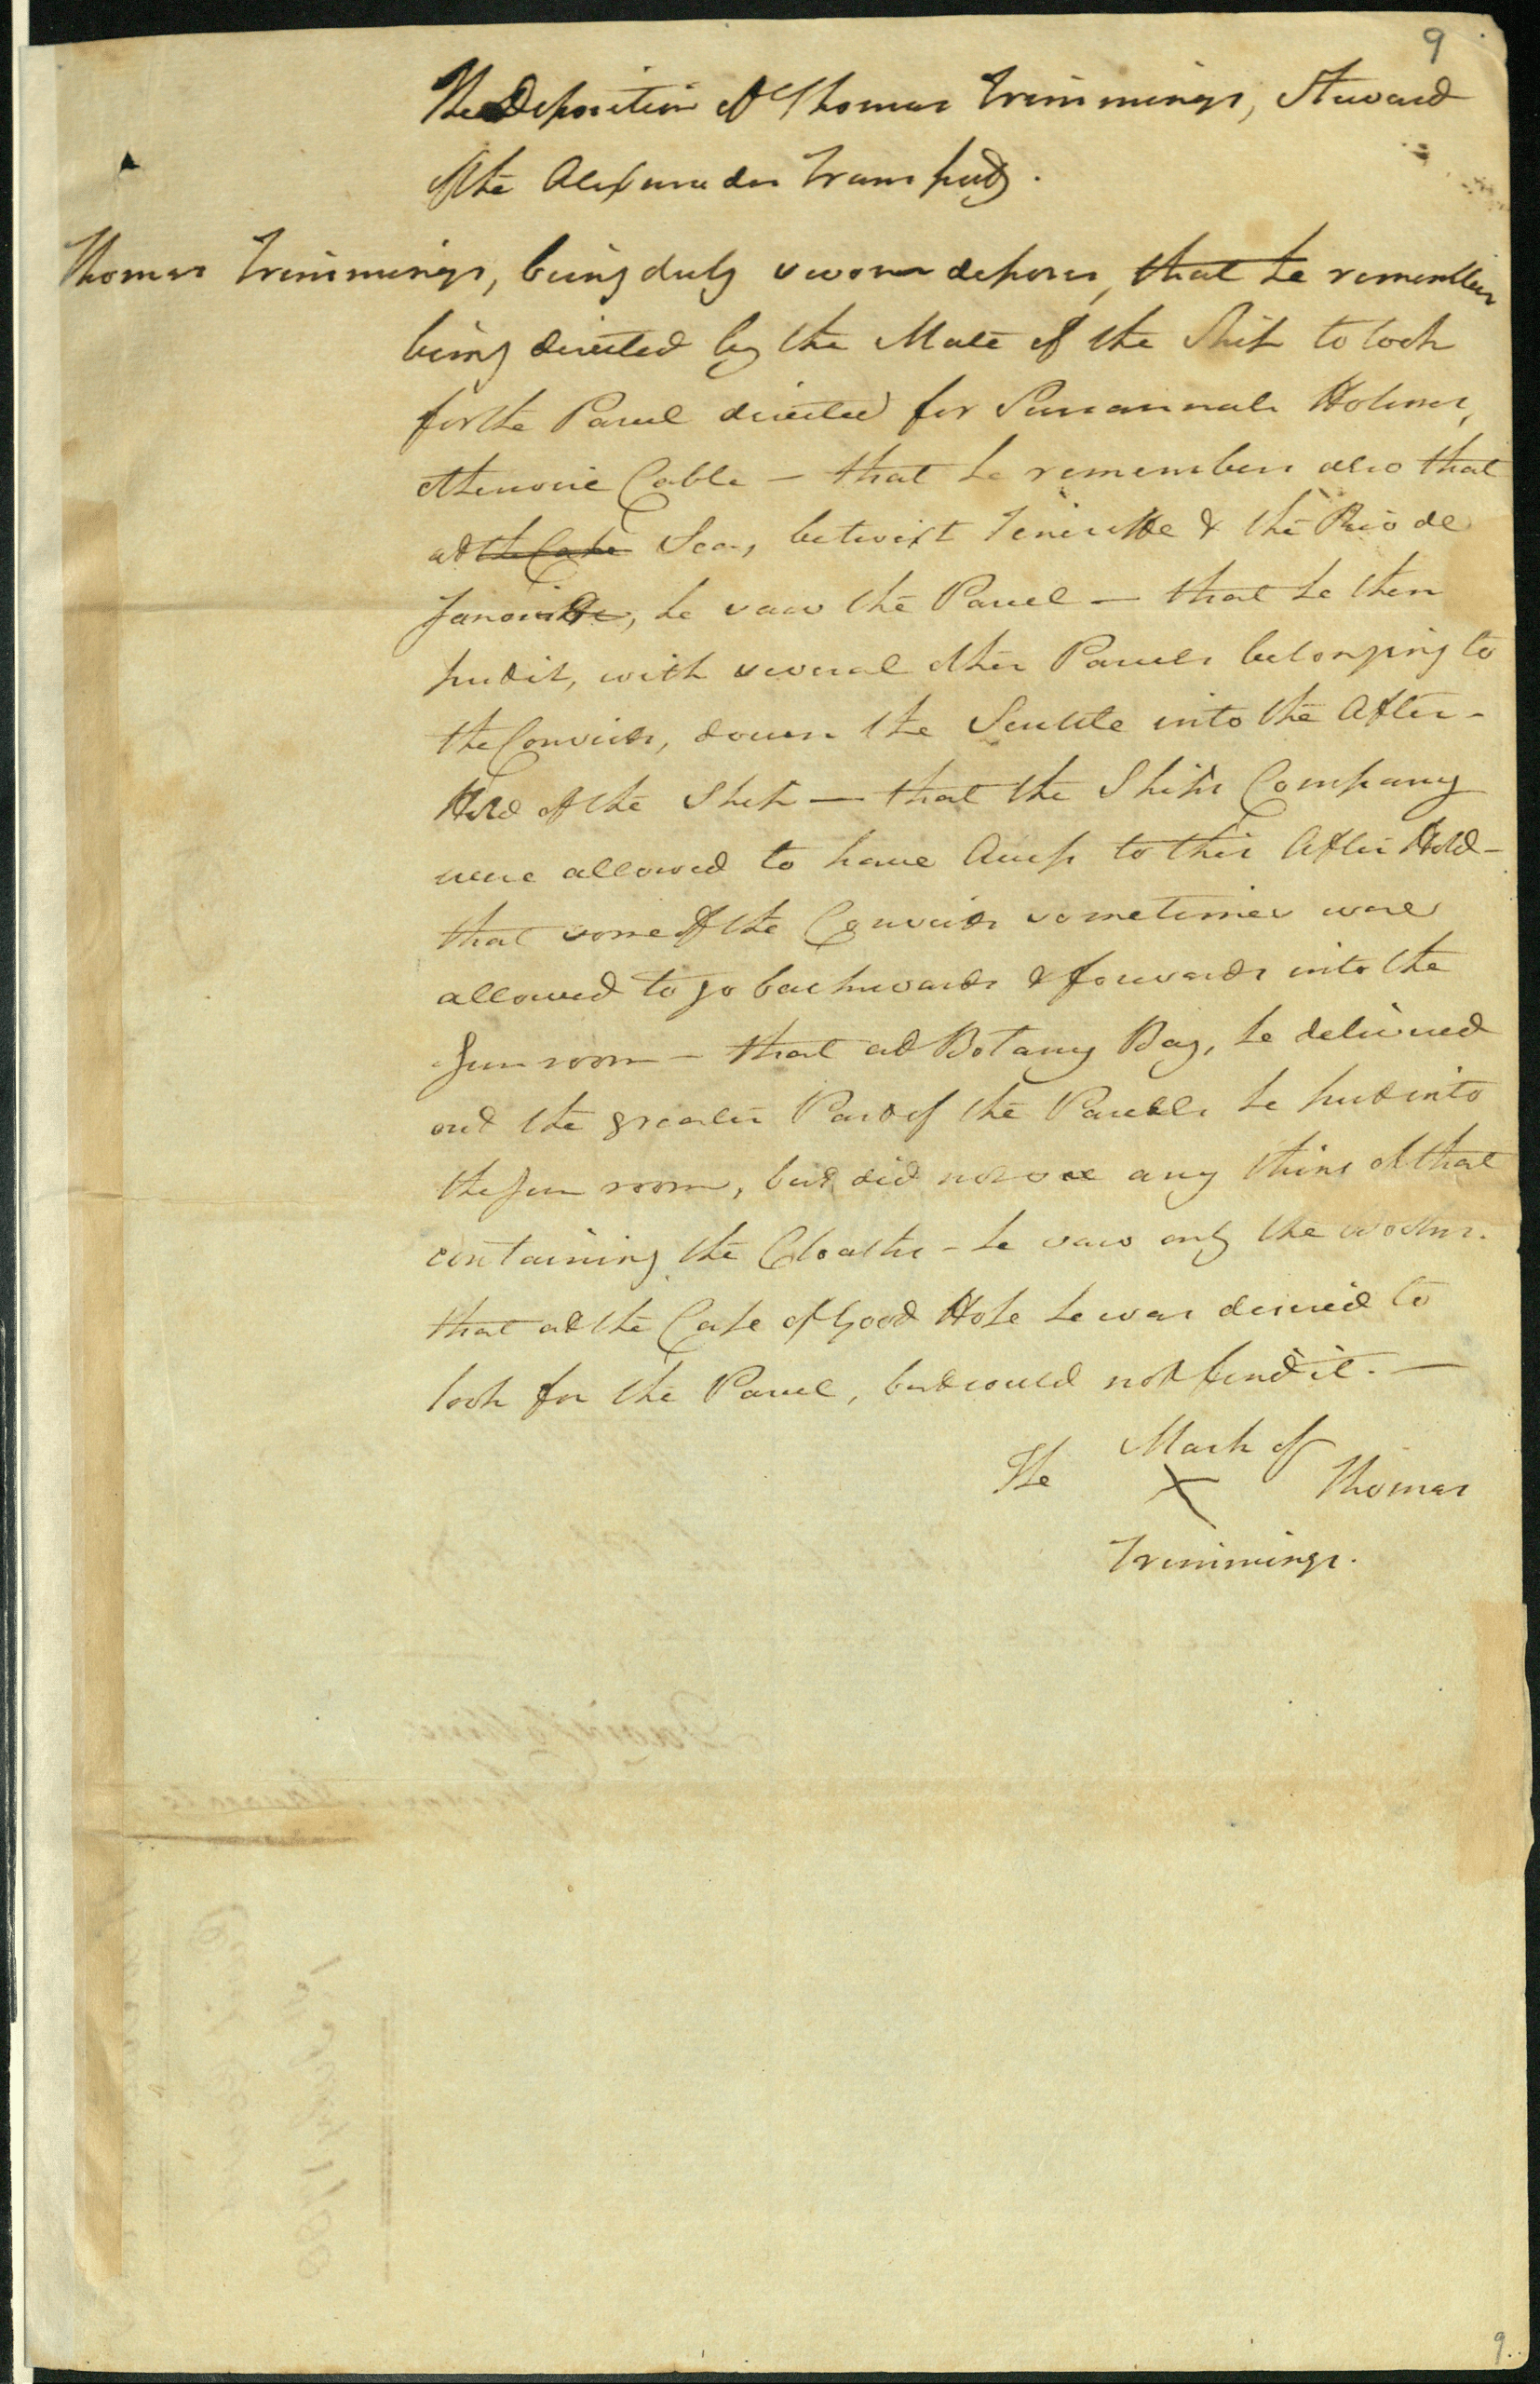 9
The Deposition of Thomas Trimmings, Steward
of the Alexander Transport.
Thomas Trimmings, being duly sworn deposes, that he remembers
being directed by the Mate of the Ship to look
for the Parcel directed for Susannah Holmes,
otherwise Cable - that he remembers also that
at the Cape Sea, betwixt Teneriffe & the Rio de
Janeiro, he saw the Parcel — that he then
put it, with several other Parcels belonging to
the Convicts, down the Scuttle into the After-
Hold of the Ship — that the Ship's Company
were allowed to have Access to this After Hold -
that some of the Convicts sometimes were
allowed to go backwards & forwards into the
Gun room - that at Botany Bay, he delivered
out the greater Part of the Parcels he put into
the Gun room, but did not see any thing of that
containing the Cloaths - he saw only the Books.
that at the Cape of Good Hope he was desired to
look for the Parcel, but could not find it. —
The Mark of
X Thomas
Trimmings.
9.